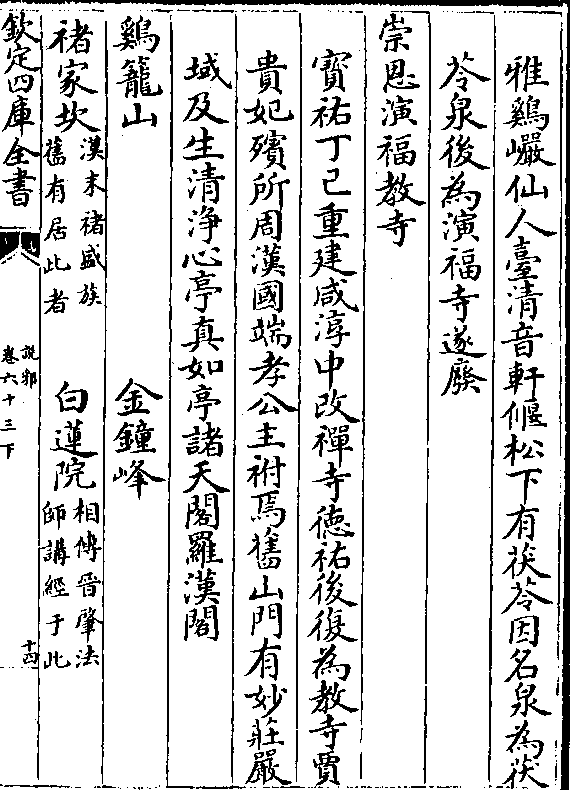 雅鷄巖仙人臺清音軒偃松下有茯苓因名泉為茯
苓泉後為演福寺遂廢
崇恩演福教寺
寳祐丁已重建咸淳中改禪寺徳祐後復為教寺賈
貴妃殯所周漢國端孝公主祔焉舊山門有妙莊嚴
域及生清浄心亭真如亭諸天閣羅漢閣
鷄籠山
金鐘峰
褚家坎漢末褚盛族舊有居此者
白蓮院相傳晉肇法師講經于此
欽定四庫全書
說郛
卷六十三下
十四